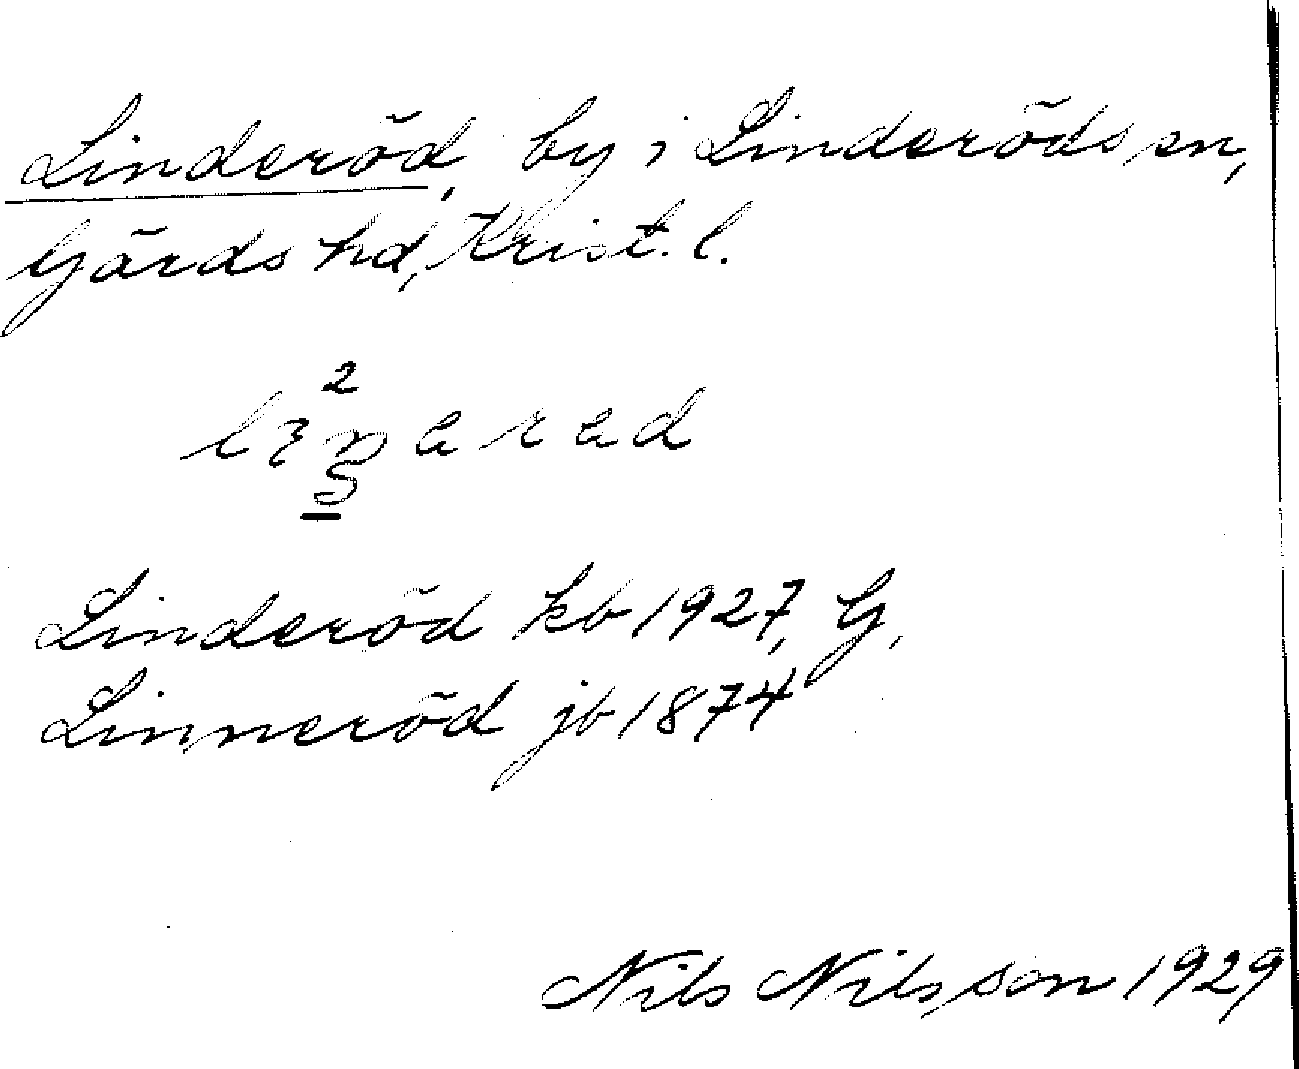 Linderöd, by i Linderöds sn,
Gärds hd, Krist. l.
Linderöd kb 1927, G,
Linneröd jb 1874
Nils Nilsson 1929